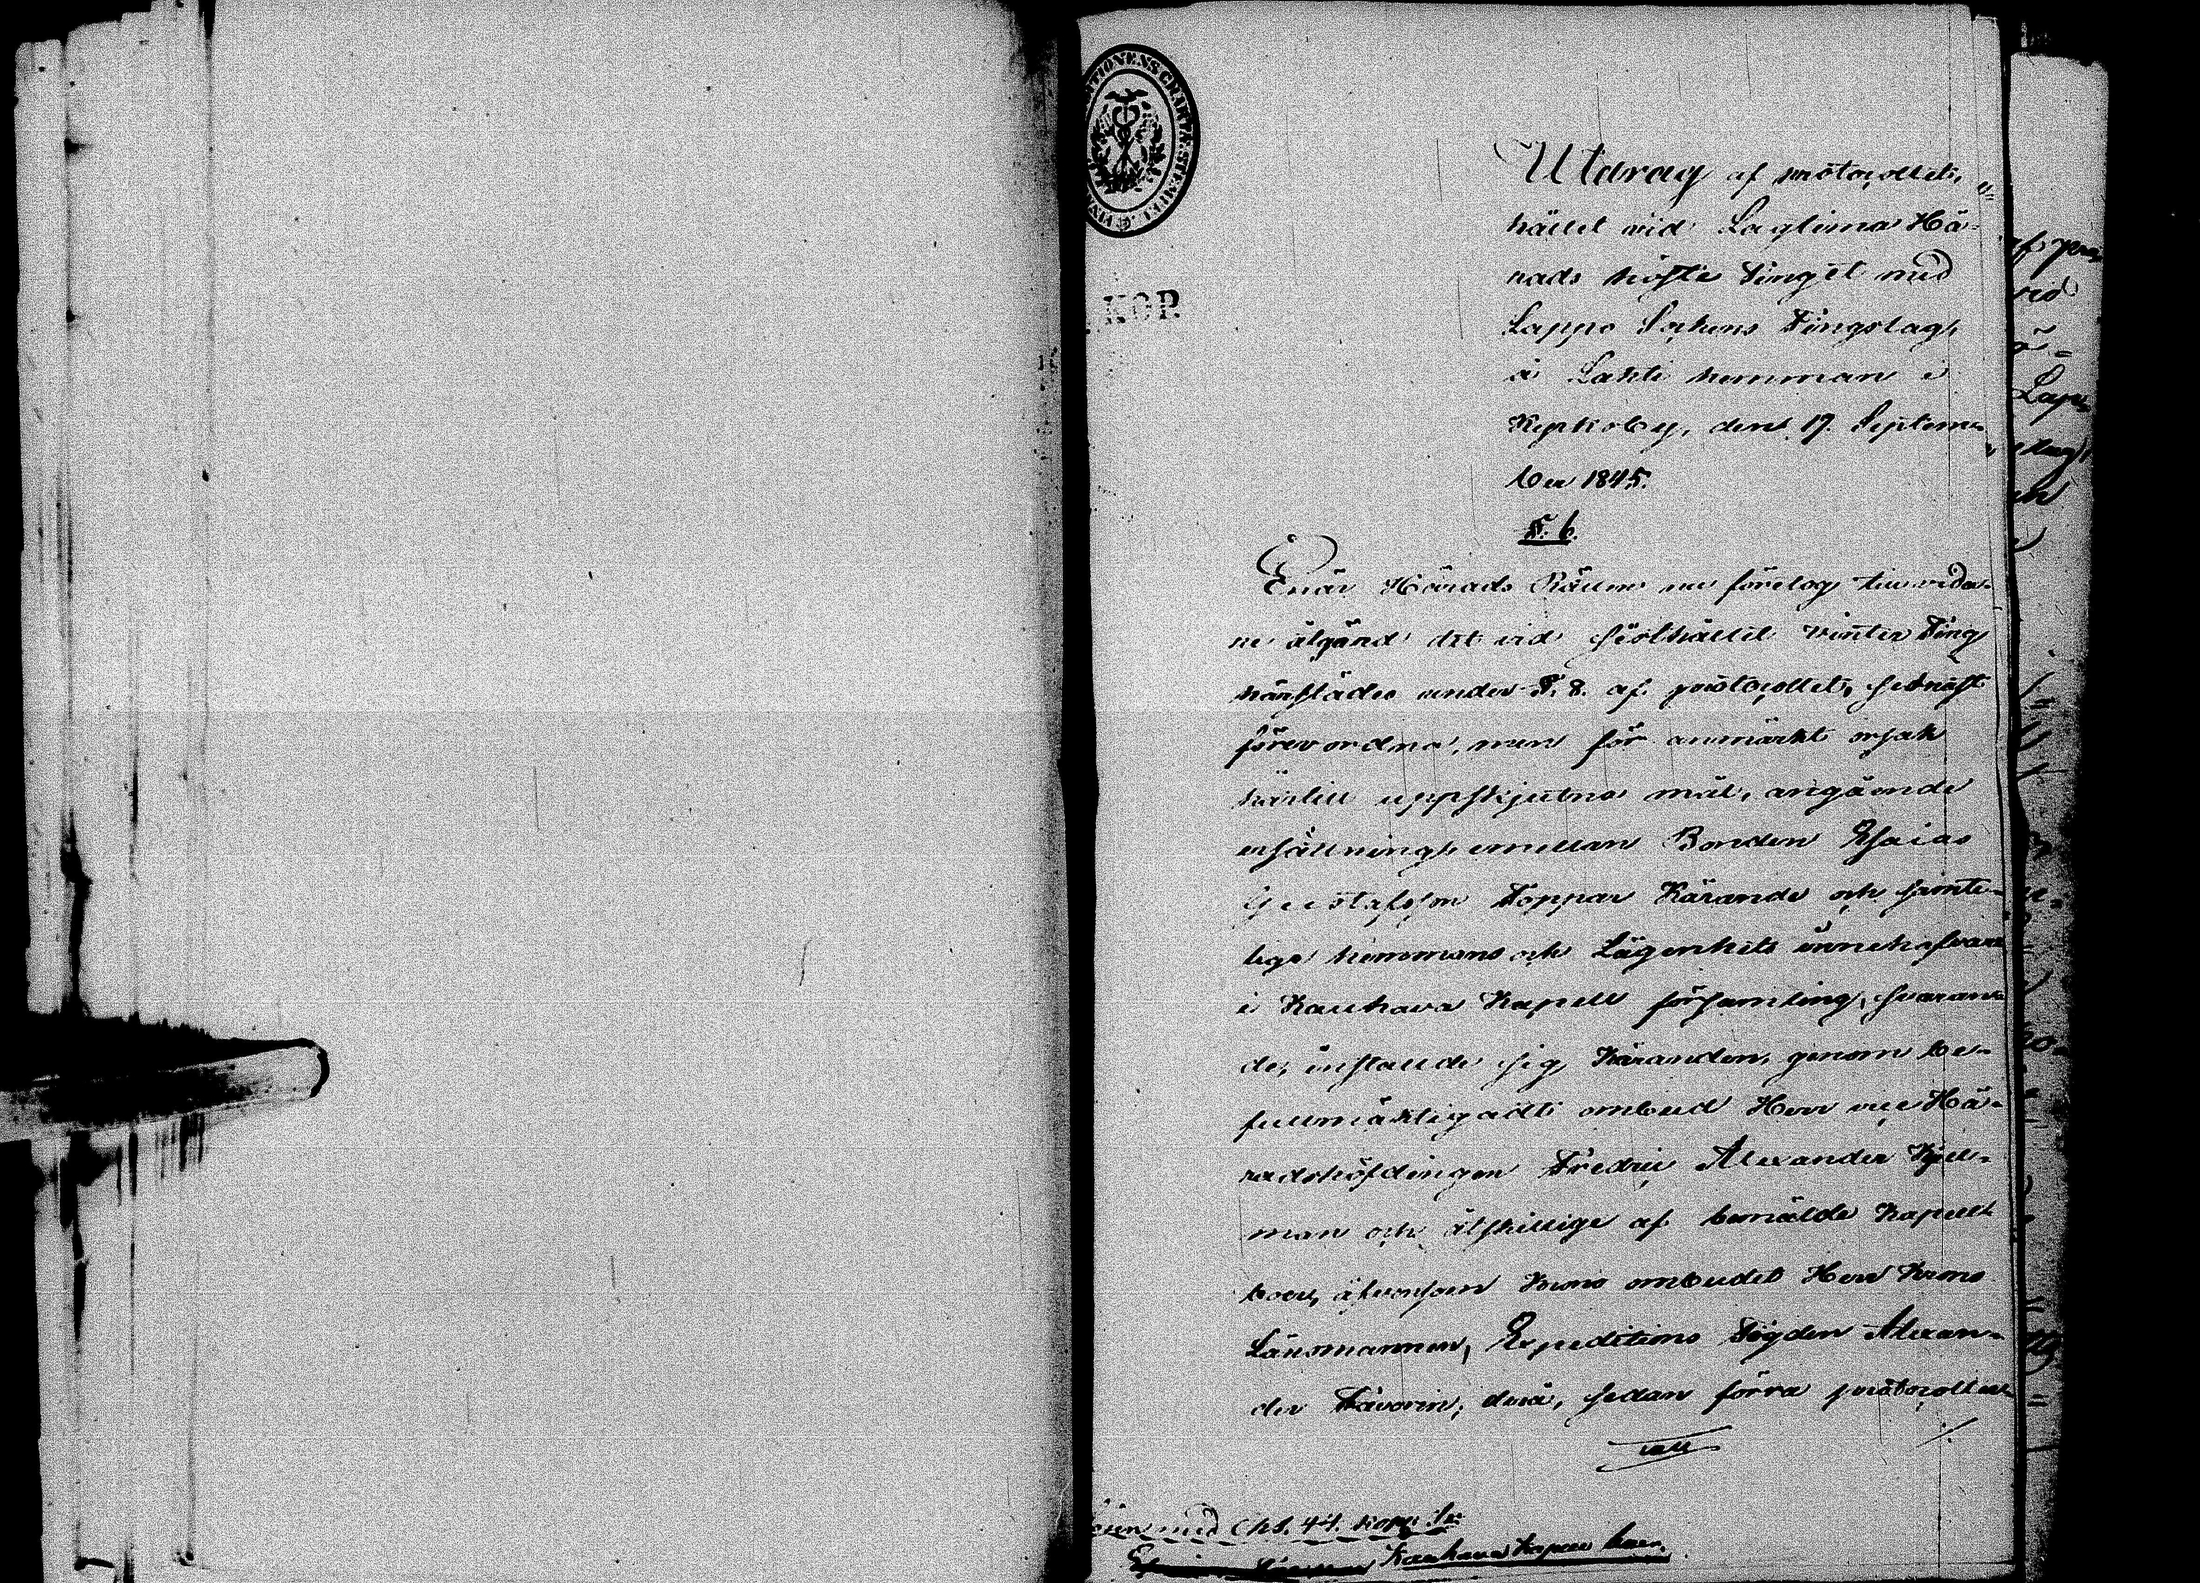 KOP.
Utdrag af protocollet,
hållet vid Lagtima Hä-
rads höste Tinget med
Lappo Sockens Tingslag,
å Lahti hemman i
Ryssköby, den 17. Septem-
ber 1845.
§. 6.
Enär Härads Rätten nu företog till vida-
re åtgärd det vid sisthållit vinter Ting
härstädes under §. 8. af protocollet, sednast
förevordna, men för anmärkt orsak
härtill uppskjutna mål, angående
ersättning, emellan Bonden Esaias
Gustafsson Toppar Kärande och samte-
lige hemmans och Lägenhets innehafvare
i Kauhava Kapell församling, svaran-
de; instälde sig Käranden, genom be-
fullmäktigadt ombud Herr vice Hä-
radshöfdingen Fredric Alexander Kjell-
man och åtskillige af bemälde Kapell
boer, äfvensom deras ombudet Herr Krono
Länsmannen, Expeditions Fogden Alexan-
der Favorin; dervä, sedan förra protocollet
med Chs. 44. kop. Sr
Kauhava Kapell boer.